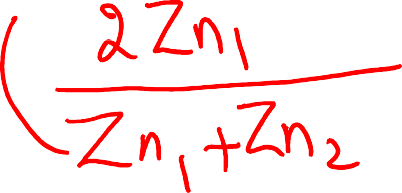 ( 2Zn₁
Zn₁+Zn₂